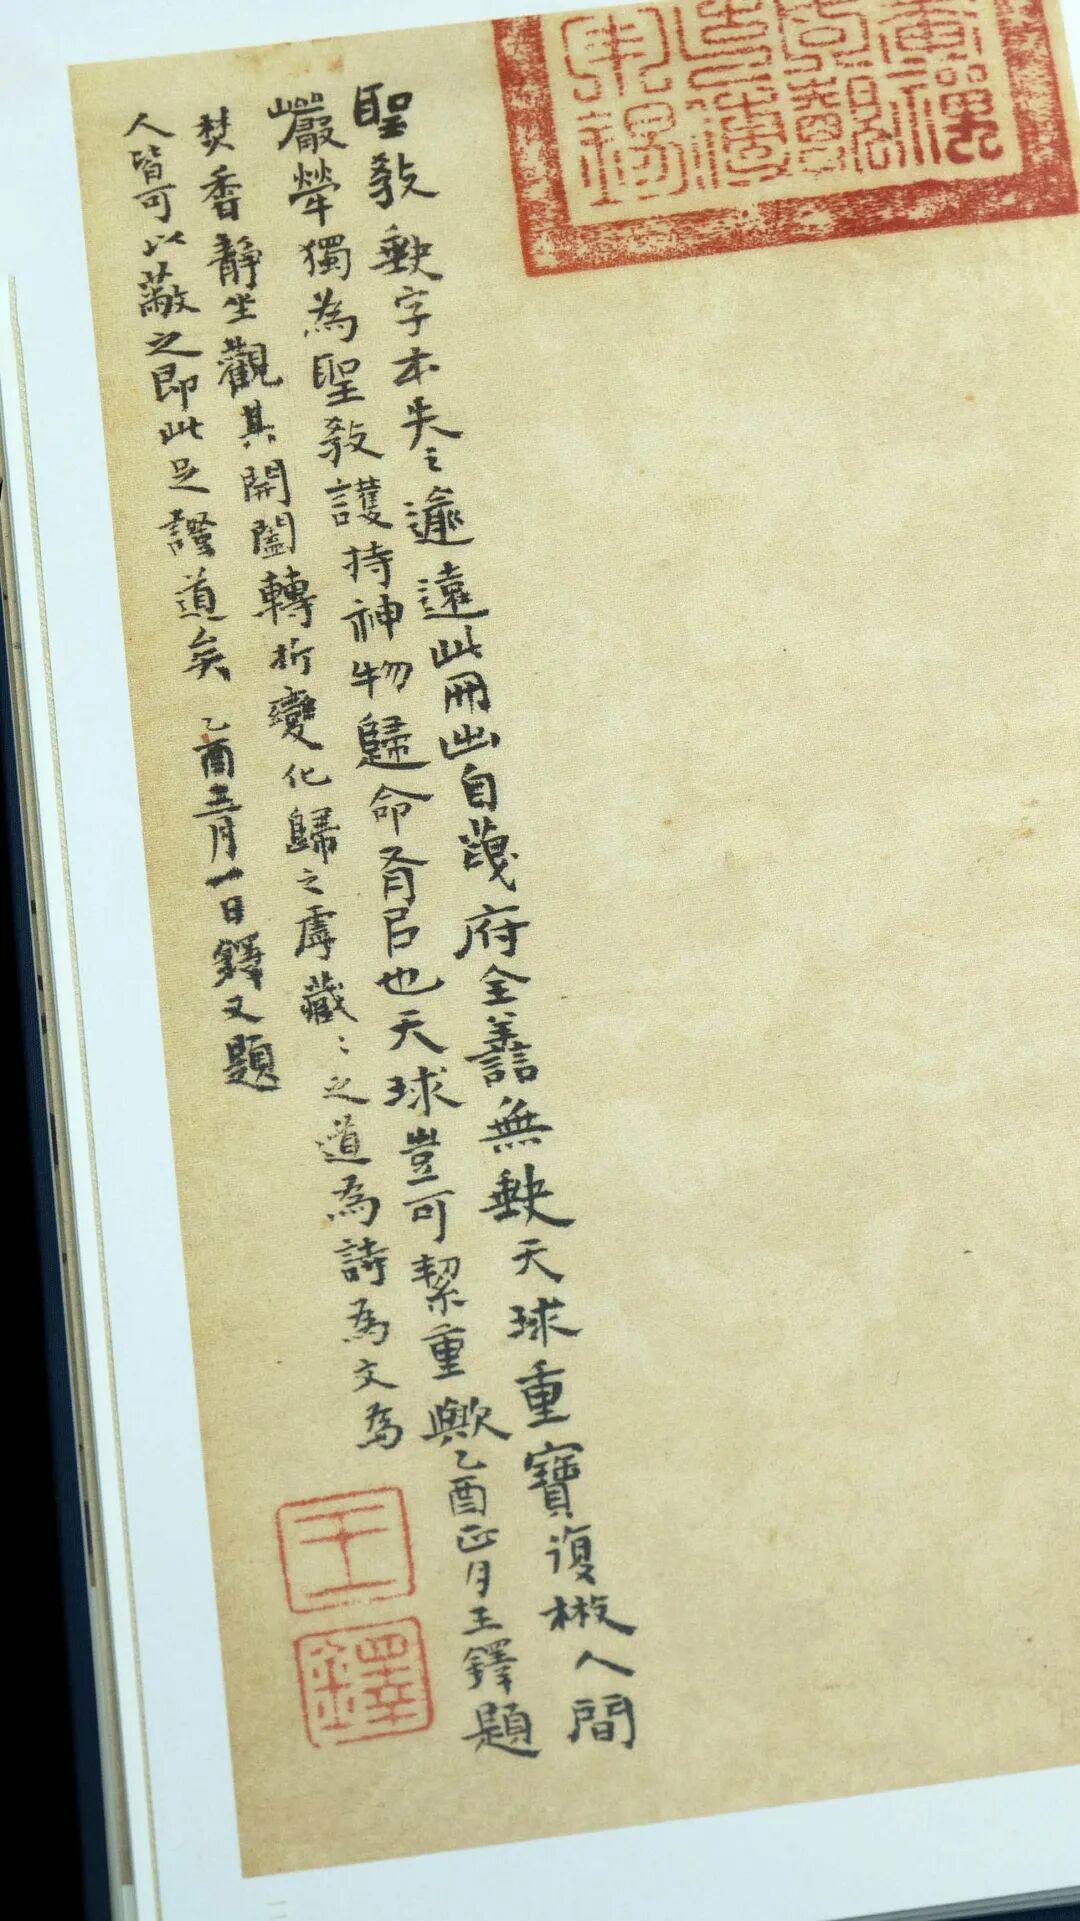 聖教缺字本失之逾遠此冊出自府全譱無缺天球重寶復㪚人間
巖犖獨為聖教護持神物歸命胥㠯也天球豈可絜重歟乙酉正月王鐸題
焚香靜坐觀其開闔轉折變化歸之虖藏〻之道為詩為文為
人皆可以蔽之即此足證道矣 乙酉三月一日鐸又題
王
鐸